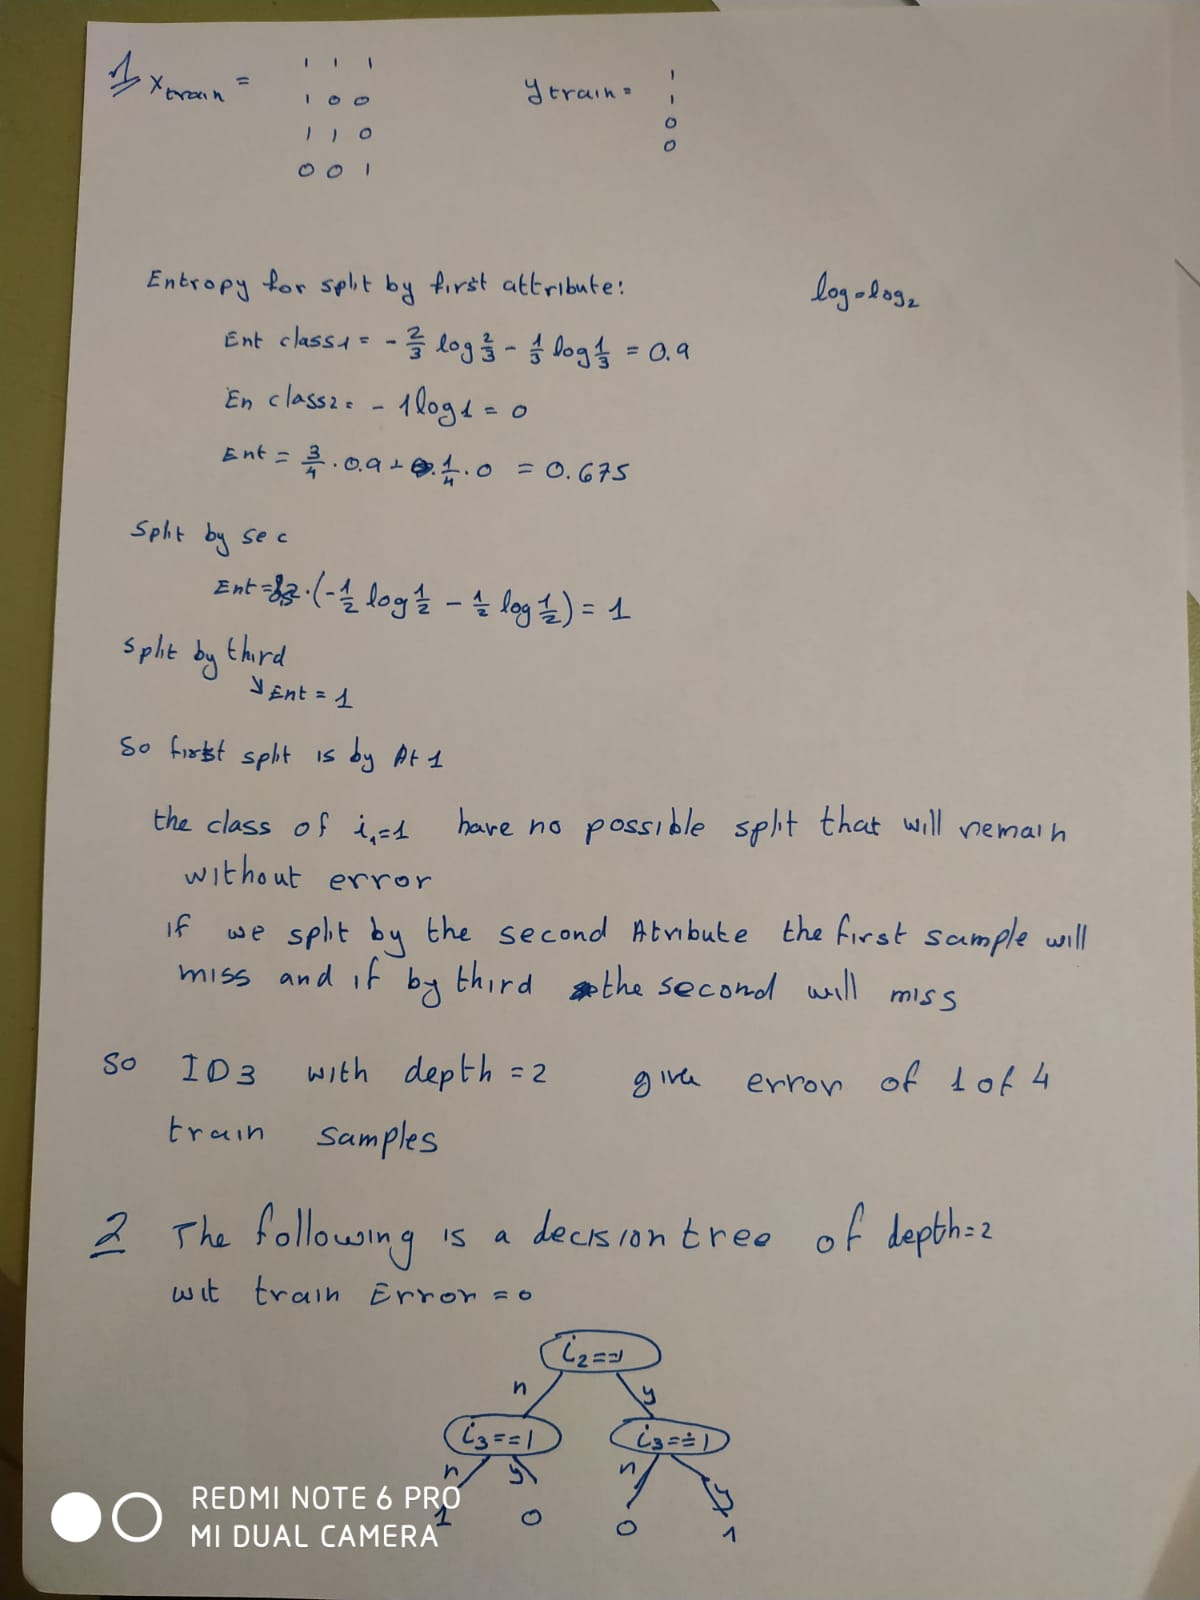 1 x train = 1 1 1 y train = 1
1 0 0 1
1 1 0 0
0 0 1 0
Entropy for split by first attribute: log = log₂
Ent class1 = - 2/3 log 2/3 - 1/3 log 1/3 = 0.9
En class2 = - 1 log 1 = 0
Ent = 3/4 · 0.9 + 1/4 · 0 = 0.675
Split by sec
Ent = · (- 1/2 log 1/2 - 1/2 log 1/2) = 1
split by third
↘ Ent = 1
So first split is by At 1
the class of i₁=1 have no possible split that will remain
without error
if we split by the second Atribute the first sample will
miss and if by third the second will miss
So ID3 with depth = 2 give error of 1 of 4
train samples
2 The following is a decision tree of depth=2
wit train Error = 0
i₂==1
n y
i₃==1 i₃==1
n y n y
1 0 0 1
REDMI NOTE 6 PRO
MI DUAL CAMERA